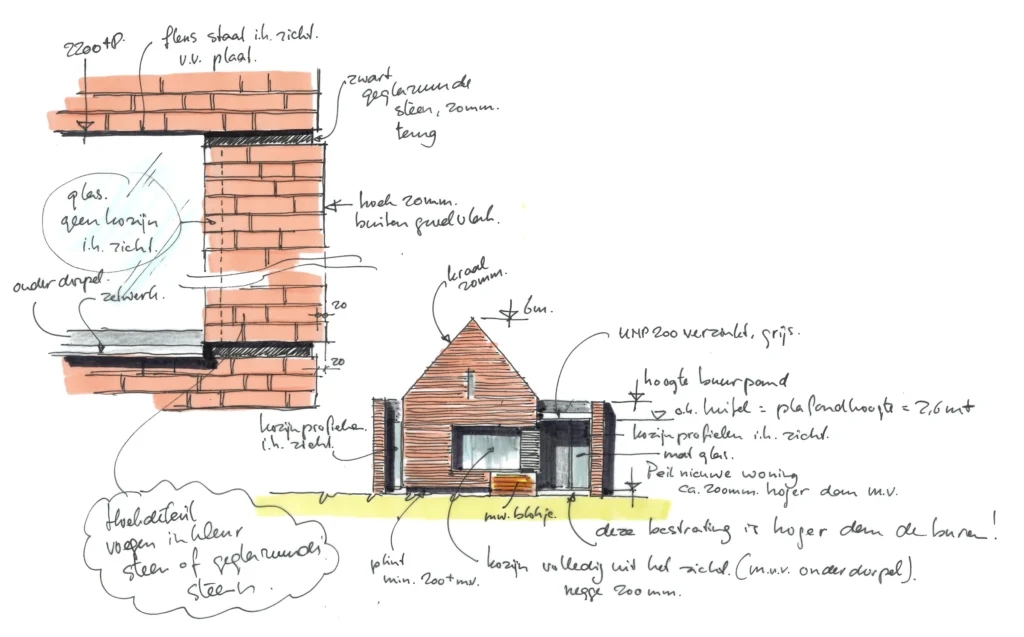 2200+P.
flens staal i.h. zicht.
v.v. plaat.
zwart
geglazuurde
steen, 20mm.
terug
glas.
geen kozijn
i.h. zicht.
hoek 20mm.
buiten gevelvlak.
onderdorpel.
zetwerk.
20
20
kraal
20mm.
6m.
UNP200 verzinkt, grijs.
hoogte buurpand
o.k. luifel = plafondhoogte = 2,6m+
kozijnprofielen
i.h. zicht.
kozijnprofielen i.h. zicht.
mat glas.
Peil nieuwe woning
ca. 200mm. hoger dan m.v.
mw. blokje.
deze bestrating is hoger dan de buren!
Hoekdetail
voegen in kleur
steen of geglazuurde
steen.
plint
min. 200+mv.
kozijn volledig uit het zicht. (m.u.v. onderdorpel).
negge 200mm.